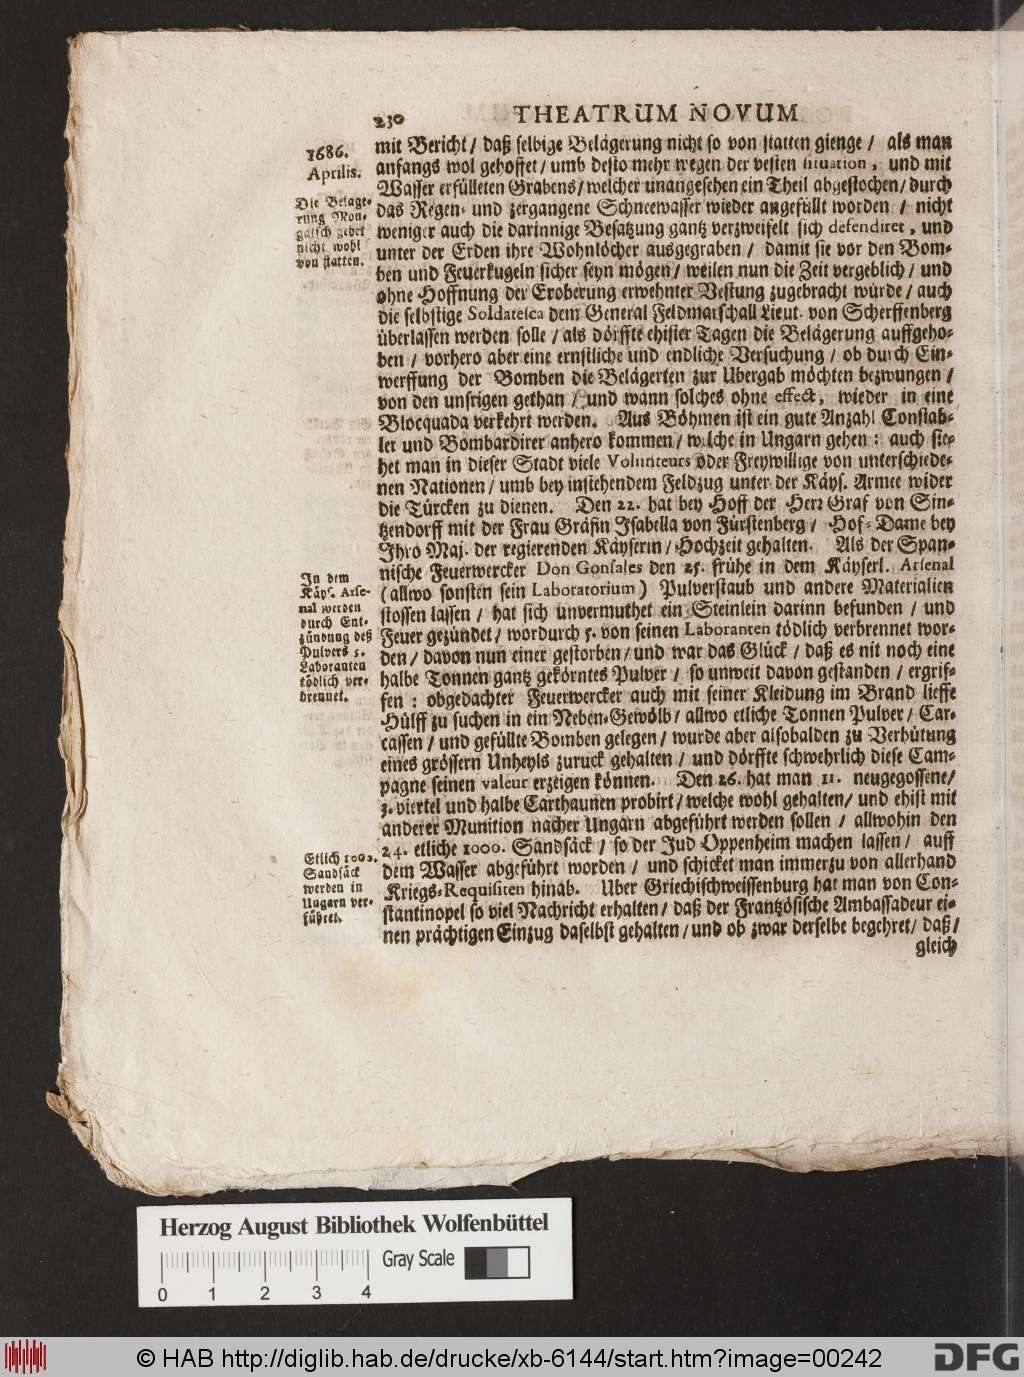 230 THEATRUM NOVUM
1686.
Aprilis.
Die Belage-
rung Mon-
gatsch gehet
nicht wohl
von statten.
mit Bericht / daß selbige Belägerung nicht so von statten gienge / als man
anfangs wol gehoffet / umb desto mehr wegen der vesten situation, und mit
Wasser erfülleten Grabens / welcher unangesehen ein Theil abgestochen / durch
das Regen- und zergangene Schneewasser wieder angefüllt worden / nicht
weniger auch die darinnige Besatzung gantz verzweifelt sich defendiret, und
unter der Erden ihre Wohnlöcher ausgegraben / damit sie vor den Bom-
ben und Feuerkugeln sicher seyn mögen / weilen nun die Zeit vergeblich / und
ohne Hoffnung der Eroberung erwehnter Vestung zugebracht würde / auch
die selbstige Soldatesca dem General Feldmarschall Lieut. von Scherffenberg
überlassen werden solle / als dörffte ehister Tagen die Belägerung auffgeho-
ben / vorhero aber eine ernstliche und endliche Versuchung / ob durch Ein-
werffung der Bomben die Belägerten zur Ubergab möchten bezwungen /
von den unsrigen gethan / und wann solches ohne effect, wieder in eine
Blocquada verkehrt werden. Aus Böhmen ist ein gute Anzahl Constab-
ler und Bombardirer anhero kommen / welche in Ungarn gehen : auch sie-
het man in dieser Stadt viele Volunteurs oder Freywillige von unterschiede-
nen Nationen / umb bey instehendem Feldzug unter der Käys. Armee wider
die Türcken zu dienen. Den 22. hat bey Hoff der Herr Graf von Sin-
tzendorff mit der Frau Gräfin Isabella von Fürstenberg / Hof-Dame bey
Ihro Maj. der regierenden Käyserin / Hochzeit gehalten. Als der Span-
nische Feuerwercker Don Gonsales den 25. frühe in dem Käyserl. Arsenal
(allwo sonsten sein Laboratorium) Pulverstaub und andere Materialien
stossen lassen / hat sich unvermuthet ein Steinlein darinn befunden / und
Feuer gezündet / wordurch 5. von seinen Laboranten tödlich verbrennet wor-
den / davon nun einer gestorben / und war das Glück / daß es nit noch eine
halbe Tonnen gantz gekörntes Pulver / so unweit davon gestanden / ergrif-
fen : obgedachter Feuerwercker auch mit seiner Kleidung im Brand lieffe
Hülff zu suchen in ein Neben-Gewölb / allwo etliche Tonnen Pulver / Car-
cassen / und gefüllte Bomben gelegen / wurde aber alsobalden zu Verhütung
eines grössern Unheyls zuruck gehalten / und dörffte schwehrlich diese Cam-
pagne seinen valeur erzeigen können. Den 26. hat man 11. neugegossene /
3. viertel und halbe Carthaunen probirt / welche wohl gehalten / und ehist mit
anderer Munition nacher Ungarn abgeführt werden sollen / allwohin den
24. etliche 1000. Sandsäck / so der Jud Oppenheim machen lassen / auff
dem Wasser abgeführt worden / und schicket man immerzu von allerhand
Kriegs-Requisiten hinab. Uber Griechischweissenburg hat man von Con-
stantinopel so viel Nachricht erhalten / daß der Frantzösische Ambassadeur ei-
nen prächtigen Einzug daselbst gehalten / und ob zwar derselbe begehret / daß /
gleich
In dem
Käys. Arse-
nal werden
durch Ent-
zündung deß
Pulvers 5.
Laboranten
tödlich ver-
brennet.
Etlich 1000.
Sandsäck
werden in
Ungarn ver-
führet.
Herzog August Bibliothek Wolfenbüttel
Gray Scale
0 1 2 3 4
© HAB http://diglib.hab.de/drucke/xb-6144/start.htm?image=00242
DFG